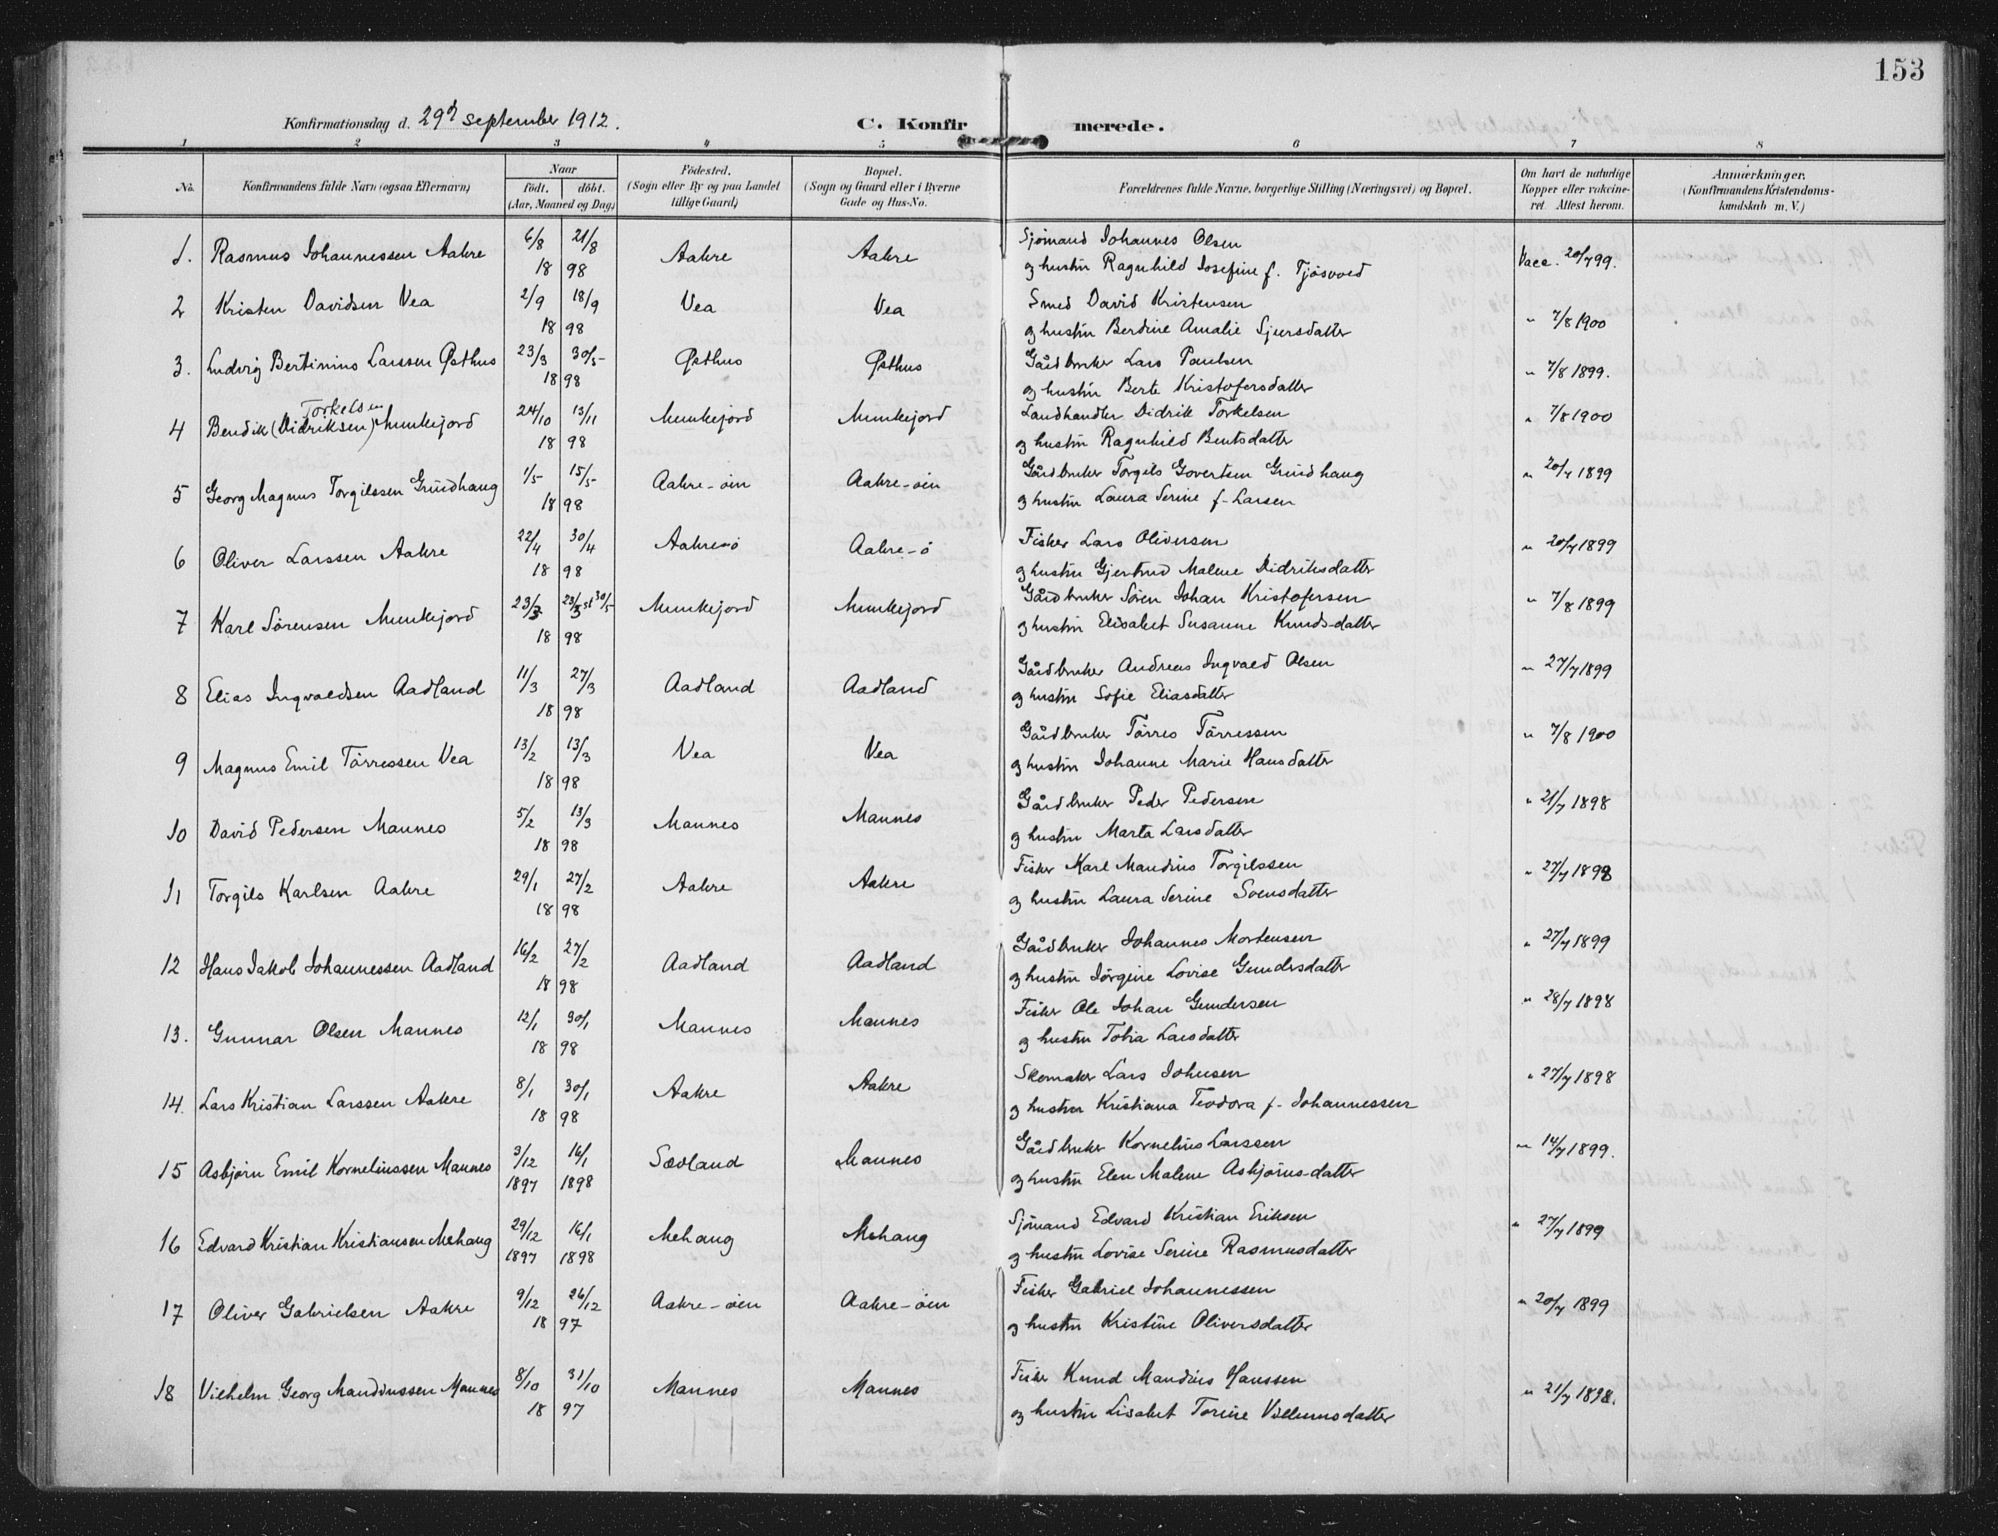 153
Konfirmationsdag d. 29d september 1912. C. Konfir merede.
1 2 3 4 5 6 7 8
No. Konfirmandens fulde Navn (ogsaa Efternavn) Naar født. døbt. (Aar, Maaned og Dag) Fødested. (Sogn eller By og paa Landet tillige Gaard) Bopæl. (Sogn og Gaard eller i Byerne Gade og Hus-No. Forældrenes fulde Navne, borgerlige Stilling (Næringsvei) og Bopæl. Om havt de naturlige Kopper eller vakcineret. Attest herom. Anmærkninger. (Konfirmandens Kristendomskundskab m. V.)
1. Rasmus Johannessen Aakre 6/8 21/8 Aakre Aakre Sjømand Johannes Olsen Vacc. 20/7 99.
18 98 og hustru Ragnhild Josefine f. Tjøsvold
2 Kristen Davidsen Vea 2/9 18/9 Vea Vea Smed David Kristensen
18 98 og hustru Berdine Amalie Sjursdatter " 7/8 1900
3. Ludvig Bertinius Larssen Østhus 23/3 30/5 Østhus Østhus Gårdbruker Lars Paulsen " 7/8 1899.
18 98 og hustru Berte Kristofersdatter
Torkelsen
4 Bendik (Didriksen) Munkejord 24/10 13/11 Munkejord Munkejord Landhandler Didrik Torkelsen " 7/8 1900
18 98 og hustru Ragnhild Bentsdatter
5 Georg Magnus Torgilssen Grindhaug 1/5 15/5 Aakre-øen Aakre-øen Gårdbruker Torgils Govertsen Grindhaug " 20/7 1899
18 98 og hustru Laura Serine f. Larsen
6 Oliver Larssen Aakre 22/4 30/4 Aakre-ø Aakre-ø Fisker Lars Oliversen " 20/7 1899
18 98 og hustru Gjertrud Malene Didriksdatter
7 Karl Sørensen Munkejord 23/3 23/3 st 30/5 Munkejord Munkejord Gårdbruker Søren Johan Kristofersen " 7/8 1899
18 98 og hustru Elisabet Susanne Knudsdatter
8 Elias Ingvaldsen Aadland 11/3 27/3 Aadland Aadland Gårdbruker Andreas Ingvald Olsen " 27/7 1899
18 98 og hustru Sofie Eliasdatter
9 Magnus Emil Tørressen Vea 13/2 13/3 Vea Vea Gårdbruker Tørres Tørressen " 7/8 1900
18 98 og hustru Johanne Marie Hansdatter
10 David Pedersen Mannes 5/2 13/3 Mannes Mannes Gårdbruker Peder Pedersen " 21/7 1898
18 98 og hustru Marta Larsdatter
11 Torgils Karlsen Aakre 29/1 27/2 Aakre Aakre Fisker Karl Mandius Torgilssen " 27/7 1898
18 98 og hustru Laura Serine Svensdatter
12 Hans Jakob Johannessen Aadland 16/2 27/2 Aadland Aadland Gårdbruker Johannes Mortensen " 27/7 1899
18 98 og hustru Jørgine Lovise Gundersdatter
13. Gunnar Olsen Mannes 12/1 30/1 Mannes Mannes Fisker Ole Johan Gundersen " 28/7 1898
18 98 og hustru Tobia Larsdatter
14. Lars Kristian Larssen Aakre 8/1 30/1 Aakre Aakre Skomaker Lars Johnsen " 27/7 1898
18 98 og hustru Kristiana Teodora f. Johannessen
15 Asbjørn Emil Korneliussen Mannes 3/12 16/1 Sævland Mannes Gårdbruker Kornelius Larssen " 14/7 1899.
1897 1898 og hustru Elen Malene Asbjørnsdatter
16 Edvard Kristian Kristiansen Mehaug 29/12 16/1 Mehaug Mehaug Sjømand Edvard Kristian Eriksen " 27/7 1899
1897 1898 og hustru Lovise Serine Rasmusdatter
17 Oliver Gabrielsen Aakre 9/12 26/12 Aakre-øen Aakre-øen Fisker Gabriel Johannessen " 20/7 1899
18 97 og hustru Kristine Oliversdatter
18 Vilhelm Georg Mandiussen Mannes 8/10 31/10 Mannes Mannes Fisker Knud Mandius Hanssen " 21/7 1898.
18 97 og hustru Lisabet Torine Villumsdatter